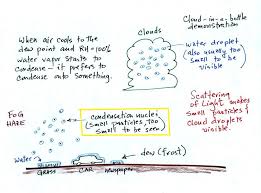 When air cools to the
dew point and RH=100%
water vapor starts to
condense - it prefers to
condense onto something.
Clouds
Cloud-in-a-bottle
demonstration
water droplet
(also usually too
small to be
visible
Scattering
of Light makes
small particles &
cloud droplets
visible.
FOG
HAZE
condensation nuclei
(small particles, too
small to be seen)
water
dew (frost)
GRASS
CAR
newspaper